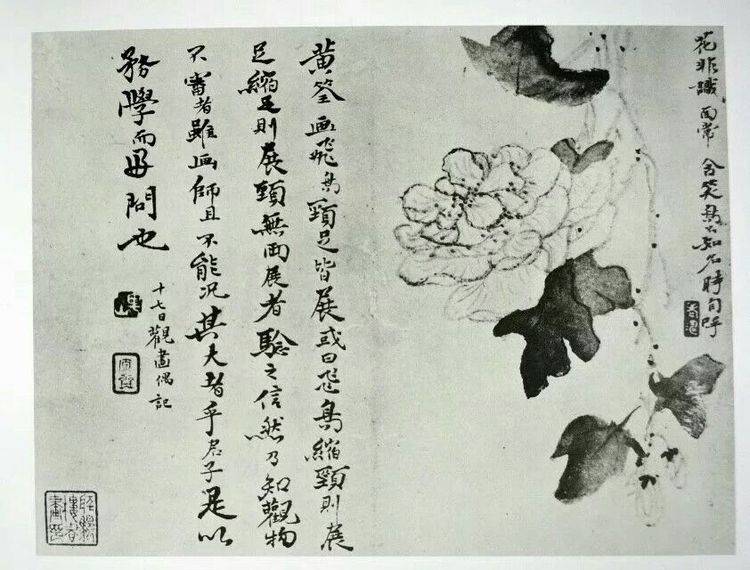 花非識面常含笑鳥不知名時自呼
黃筌画飛鳥頸足皆展或曰飛鳥縮頸則展
足縮足則展頸無兩展者驗之信然乃知觀物
不審者雖画師且不能況其大者乎君子是以
務學而好問也
十七日觀畫偶記